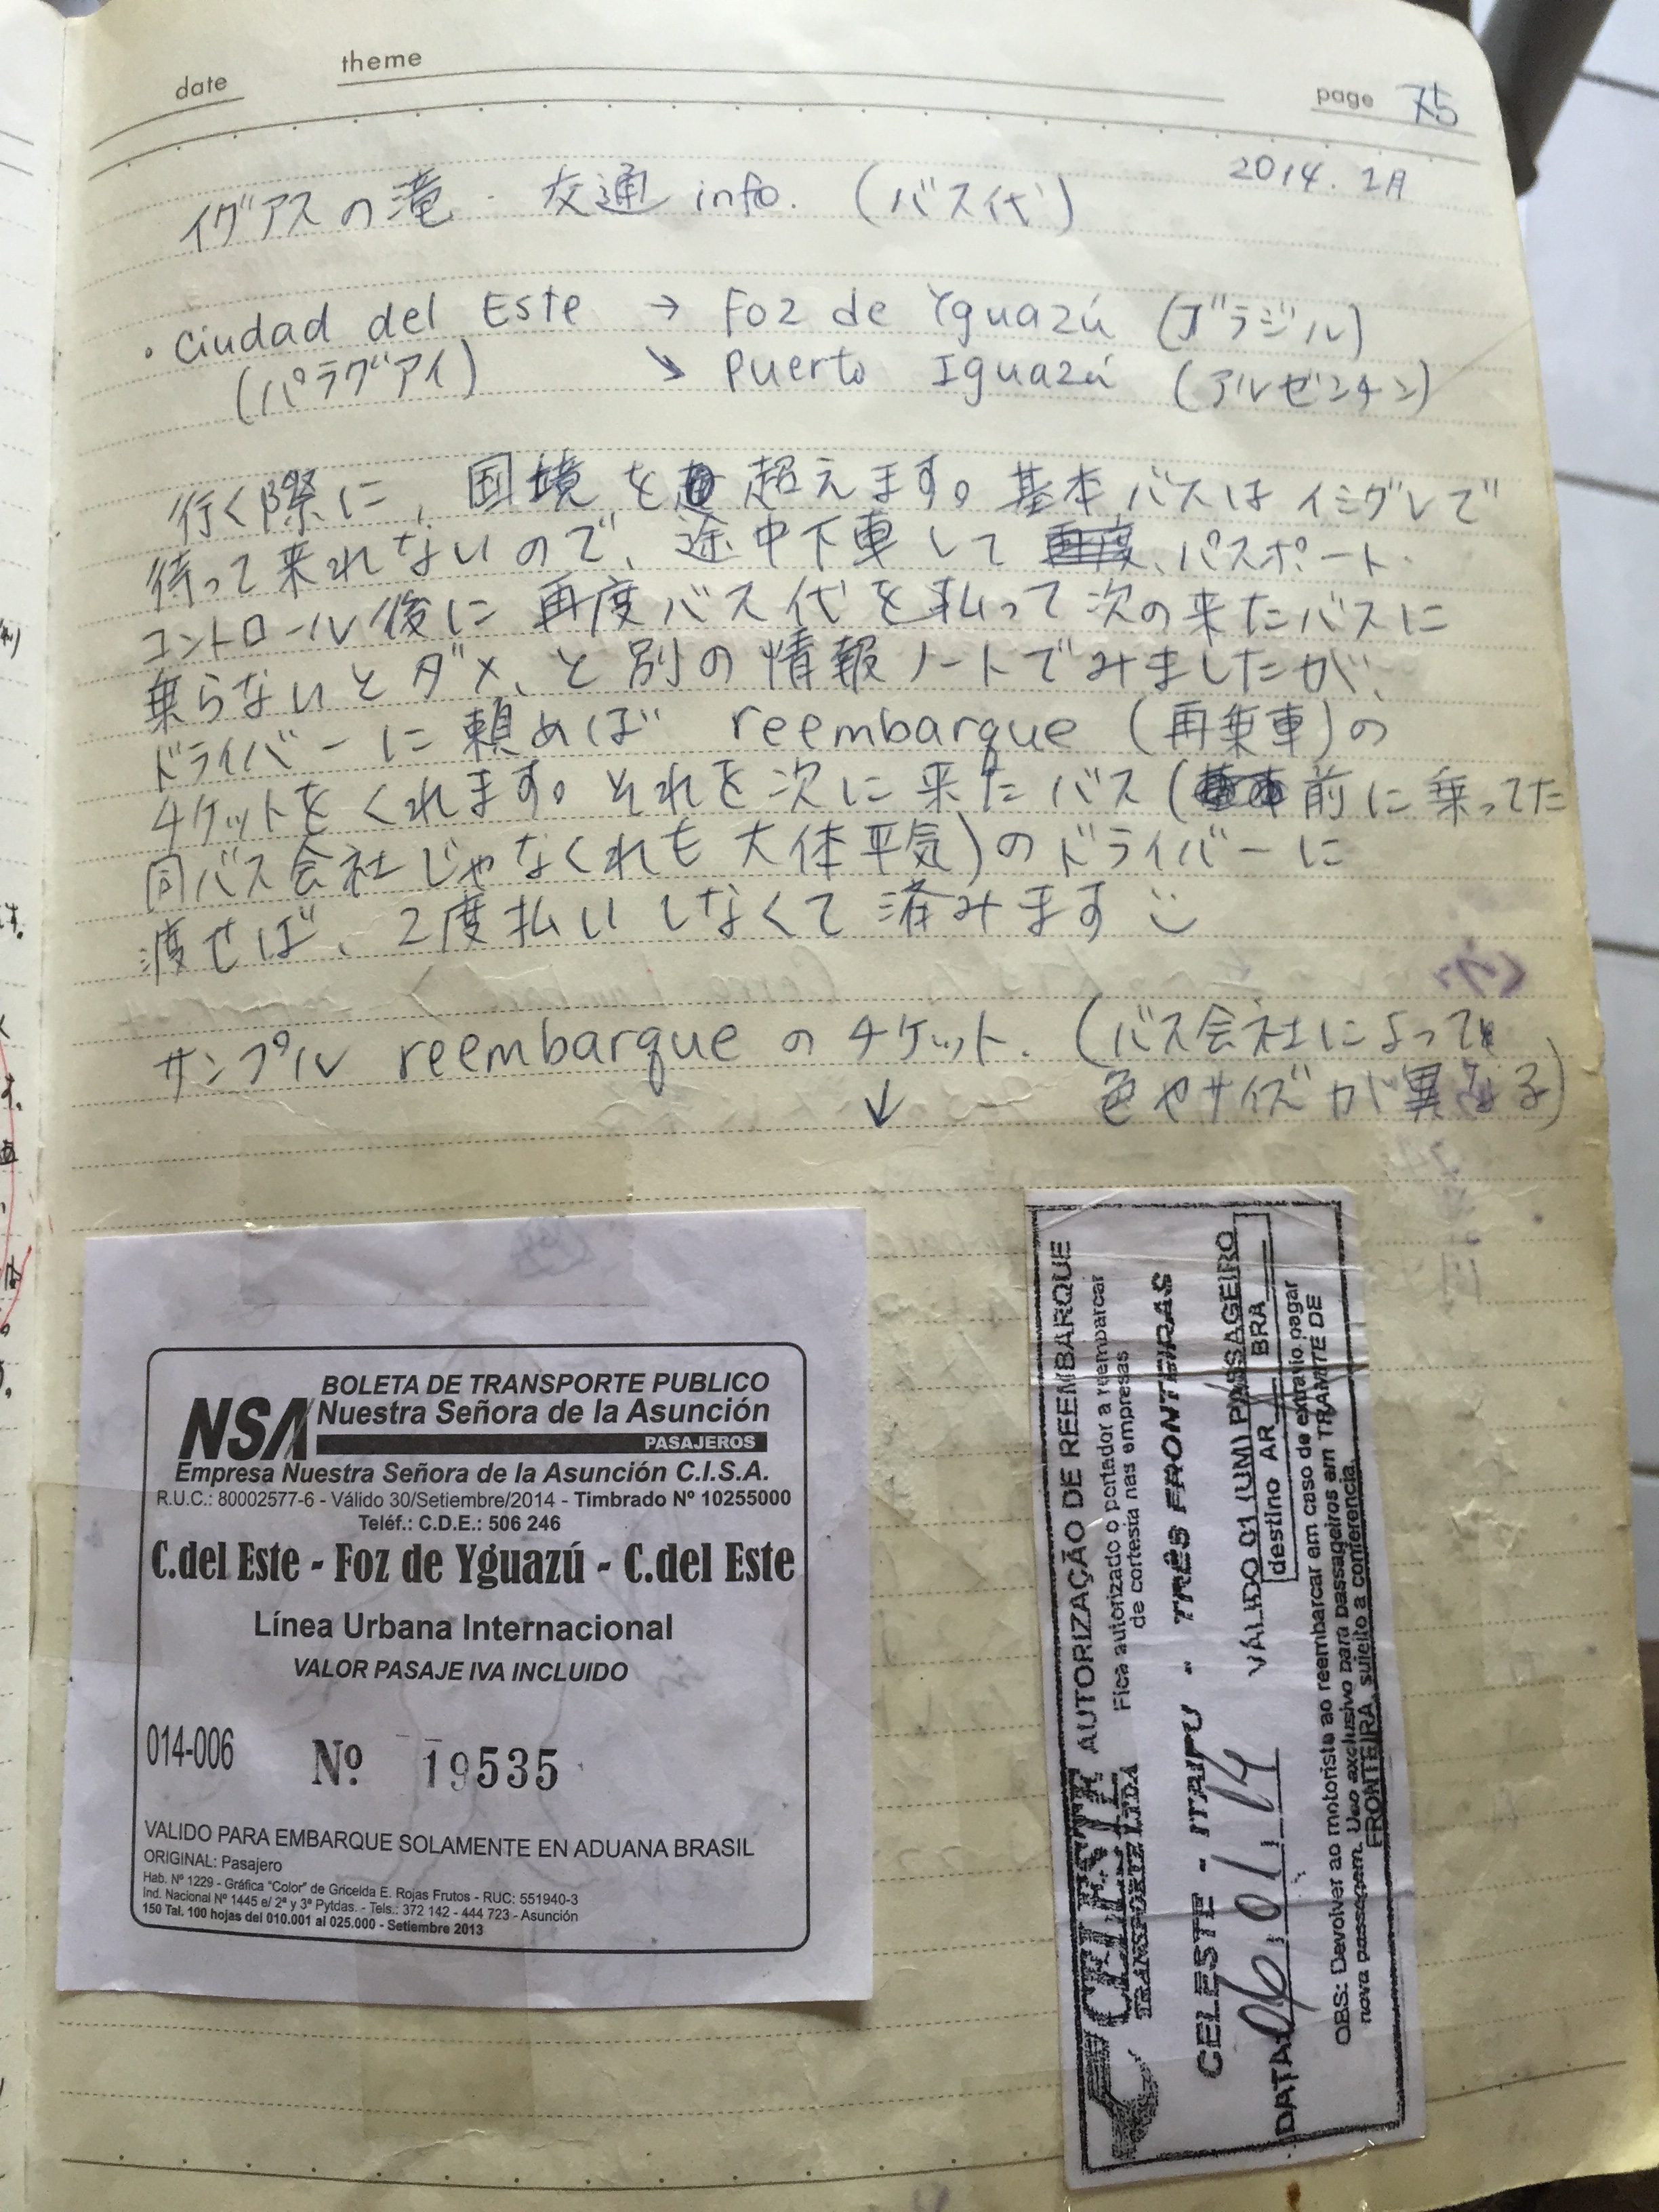 date
theme
page 75
2014. 1月
イグアスの滝 · 交通 info. (バス代)
• Ciudad del Este → Foz de Yguazú (ブラジル)
(パラグアイ) ↘ Puerto Iguazú (アルゼンチン)
行く際に、国境を超えます。基本バスはイミグレで
待って来れないので、途中下車して、パスポート
コントロール後に再度バス代を払って次の来たバスに
乗らないとダメ、と別の情報ノートでみましたが、
ドライバーに頼めば reembarque (再乗車)の
チケットをくれます。それを次に来たバス(前に乗ってた
同バス会社じゃなくれも大体平気)のドライバーに
渡せば、2度払いしなくて済みます
サンプル reembarque のチケット. (バス会社によって
↓ 色やサイズが異なる)
BOLETA DE TRANSPORTE PUBLICO
NSA Nuestra Señora de la Asunción
PASAJEROS
Empresa Nuestra Señora de la Asunción C.I.S.A.
R.U.C.: 80002577-6 - Válido 30/Setiembre/2014 - Timbrado Nº 10255000
Teléf.: C.D.E.: 506 246
C.del Este - Foz de Yguazú - C.del Este
Línea Urbana Internacional
VALOR PASAJE IVA INCLUIDO
014-006 Nº 19535
VALIDO PARA EMBARQUE SOLAMENTE EN ADUANA BRASIL
ORIGINAL: Pasajero
Hab. Nº 1229 - Gráfica "Color" de Gricelda E. Rojas Frutos - RUC: 551940-3
Ind. Nacional Nº 1445 e/ 2ª y 3ª Pytdas. - Tels.: 372 142 - 444 723 - Asunción
150 Tal. 100 hojas del 010.001 al 025.000 - Setiembre 2013
CELESTE AUTORIZAÇÃO DE REEMBARQUE
TRANSPORTE LTDA Fica autorizado o portador a reembarcar
de cortesia nas empresas
CELESTE - ITAIPU - TRÊS FRONTEIRAS
DATA 06/01/14 VÁLIDO 01 (UM) PASSAGEIRO
destino AR BRA
OBS.: Devolver ao motorista ao reembarcar em caso de extravio pagar
nova passagem. Uso exclusivo para passageiros em TRAMITE DE
FRONTEIRA, sujeito a conferencia.